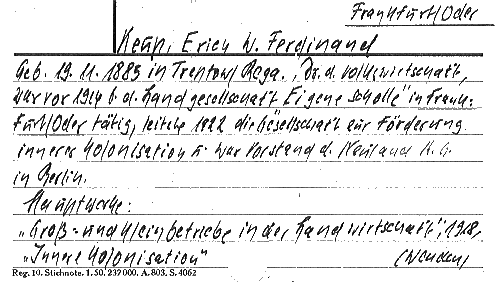 Frankfurt/Oder
Keup, Erich W. Ferdinand
Geb. 19. 11. 1885 in Treptow/Rega., Dr. d. Volkswirtschaft,
war vor 1914 b. d. Landgesellschaft "Eigene Scholle" in Frank-
furt/Oder tätig, leitete 1922 die Gesellschaft zur Förderung
innerer Kolonisation u. war Vorstand d. Neuland A.G.
in Berlin.
Hauptwerke:
„Groß- und Kleinbetriebe in der Landwirtschaft", 1913,
„Innere Kolonisation" (Wenden)
Reg. 10. Stichnote. 1. 50. 237 000. A. 803. S. 4062